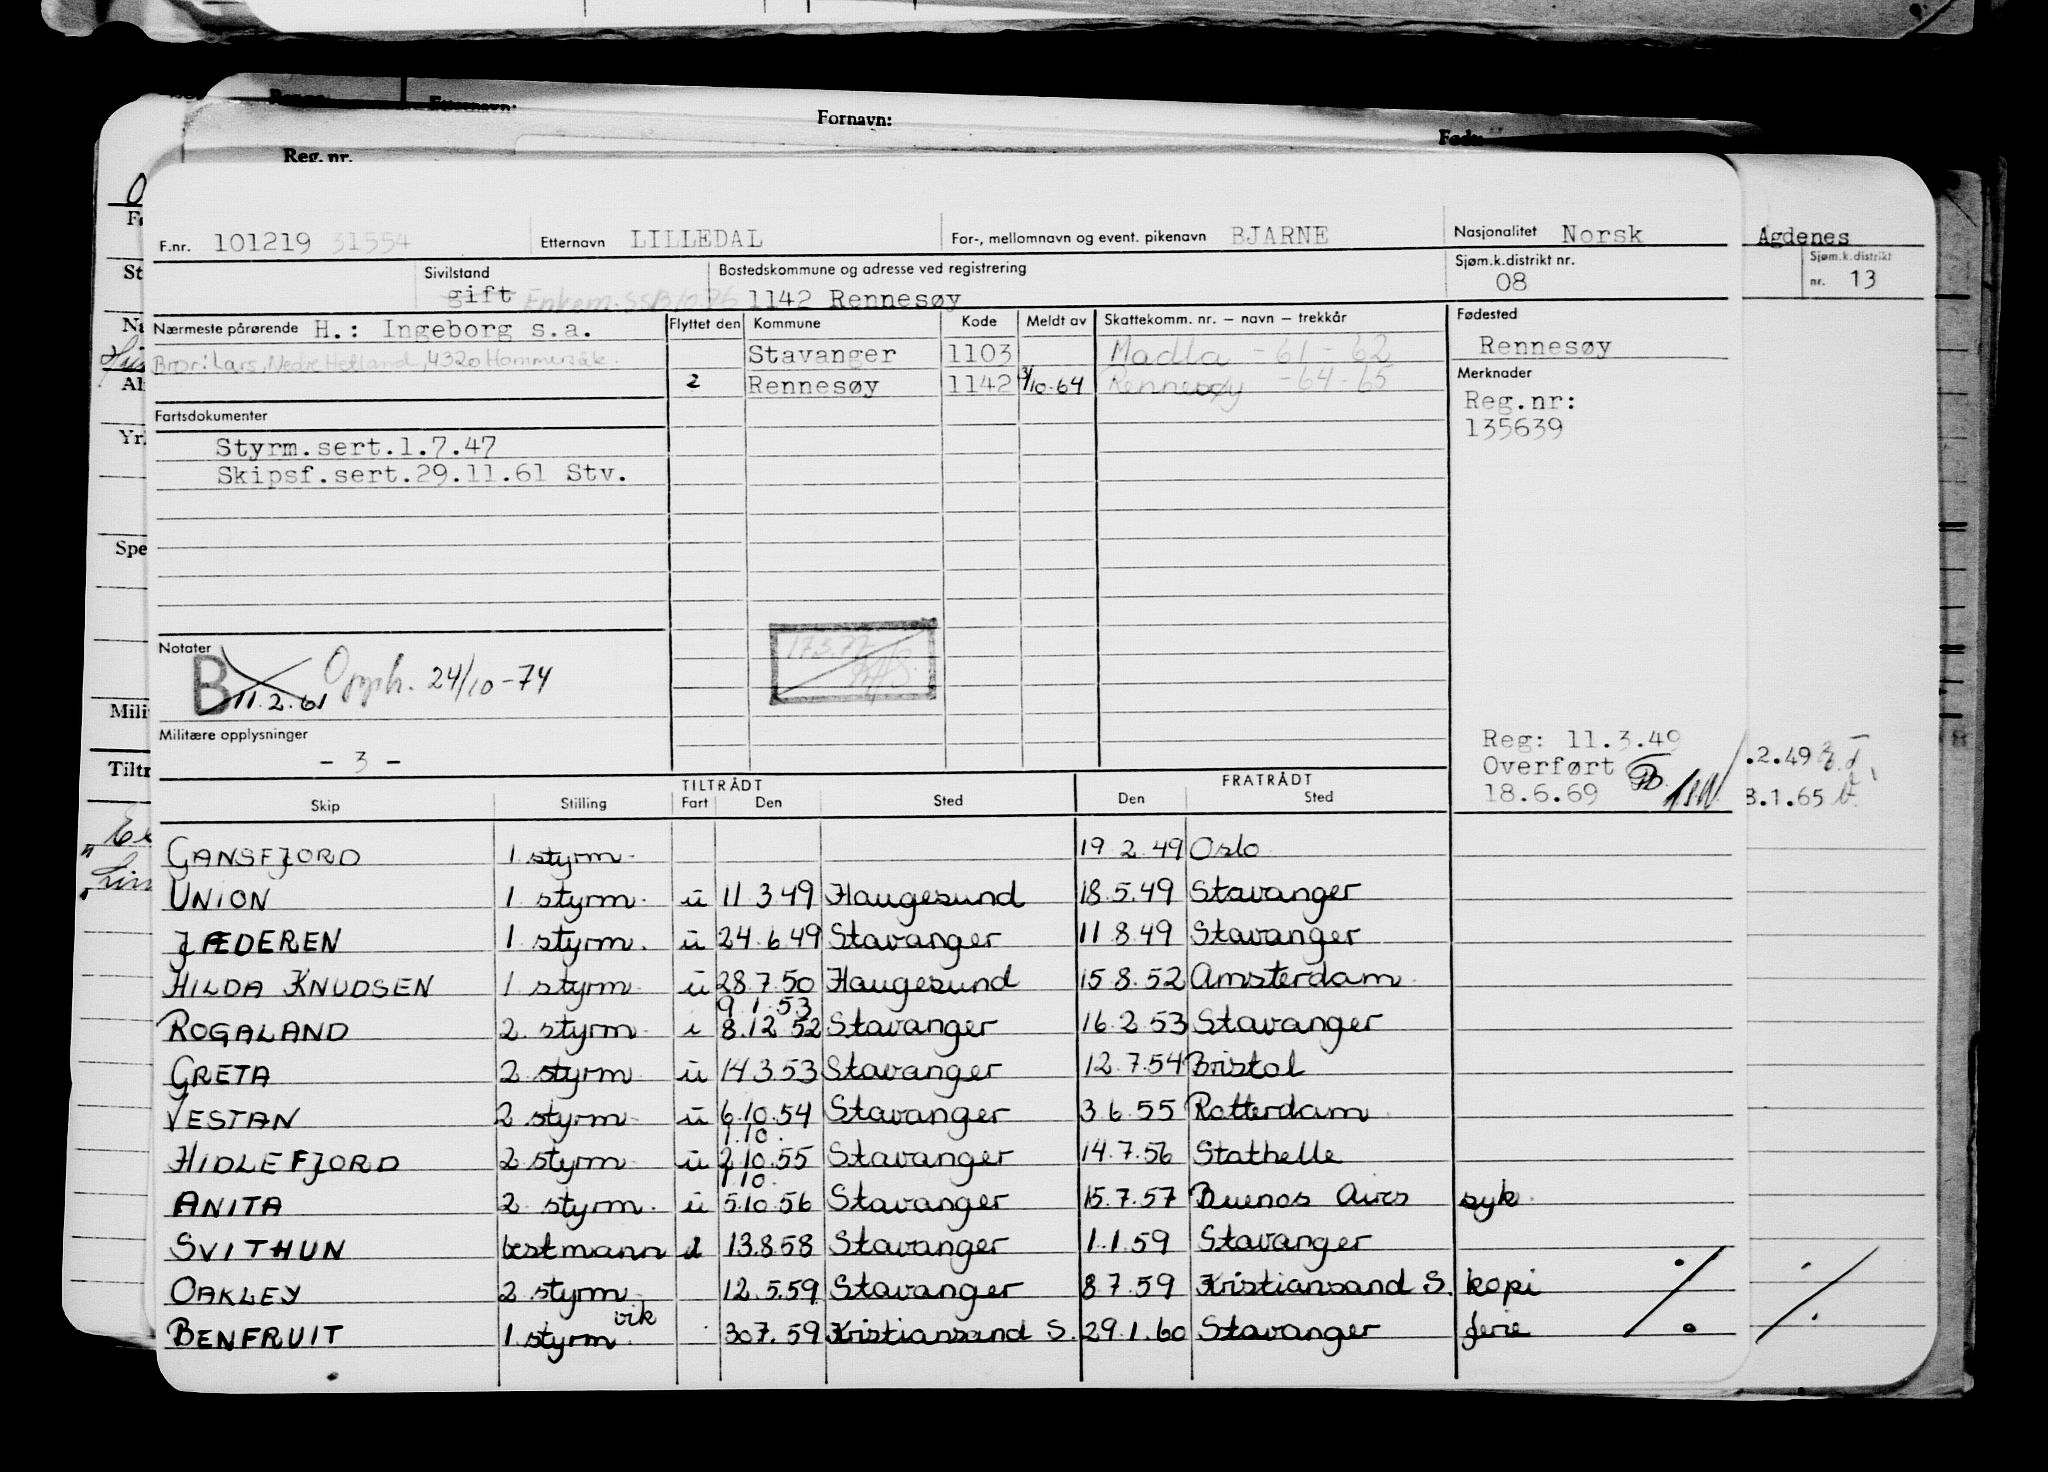 Etternavn:
Fornavn:
Født:
Reg. nr.
F.nr. 101219 31554 Etternavn LILLEDAL For-, mellomnavn og event. pikenavn BJARNE Nasjonalitet Norsk Agdenes
Sivilstand gift Enkem. Bostedskommune og adresse ved registrering 1142 Rennesøy Sjøm.k.distrikt nr. 08 Sjøm.k.distrikt nr. 13
Nærmeste pårørende H.: Ingeborg s.a. Flyttet den Kommune Kode Meldt av Skattekomm. nr. – navn – trekkår Fødested
Bror: Lars, Nedre Hetland, 4320 Hommersåk. Stavanger 1103 Madla - 61 - 62 Rennesøy
2 Rennesøy 1142 /10-64 Rennesøy - 64 - 65 Merknader
Reg.nr:
135639
Fartsdokumenter
Styrm.sert.1.7.47
Skipsf.sert.29.11.61 Stv.
Notater
B 11.2.61 Opph. 24/10-74
17.3.77
Militære opplysninger
- 3 -
Reg: 11.3.49
Overført
18.6.69
.2.49
8.1.65
TILTRÅDT FRATRÅDT
Skip Stilling Fart Den Sted Den Sted
GANSFJORD 1 styrm. 19.2.49 Oslo
UNION 1 styrm. u 11.3.49 Haugesund 18.5.49 Stavanger
JÆDEREN 1 styrm. u 24.6.49 Stavanger 11.8.49 Stavanger
HILDA KNUDSEN 1 styrm. u 28.7.50 Haugesund 15.8.52 Amsterdam
9.1.53
ROGALAND 2. styrm. i 8.12.52 Stavanger 16.2.53 Stavanger
GRETA 2 styrm. u 14.3.53 Stavanger 12.7.54 Bristol
VESTAN 2 styrm. u 6.10.54 Stavanger 3.6.55 Rotterdam
1.10.
HIDLEFJORD 2 styrm. u 2.10.55 Stavanger 14.7.56 Stathelle
1.10.
ANITA 2 styrm. u 5.10.56 Stavanger 15.7.57 Buenos Aires syk.
SVITHUN bestmann d 13.8.58 Stavanger 1.1.59 Stavanger
OAKLEY 2 styrm. 12.5.59 Stavanger 8.7.59 Kristiansand S. kopi
BENFRUIT 1. styrm. vik 30.7.59 Kristiansand S. 29.1.60 Stavanger ferie